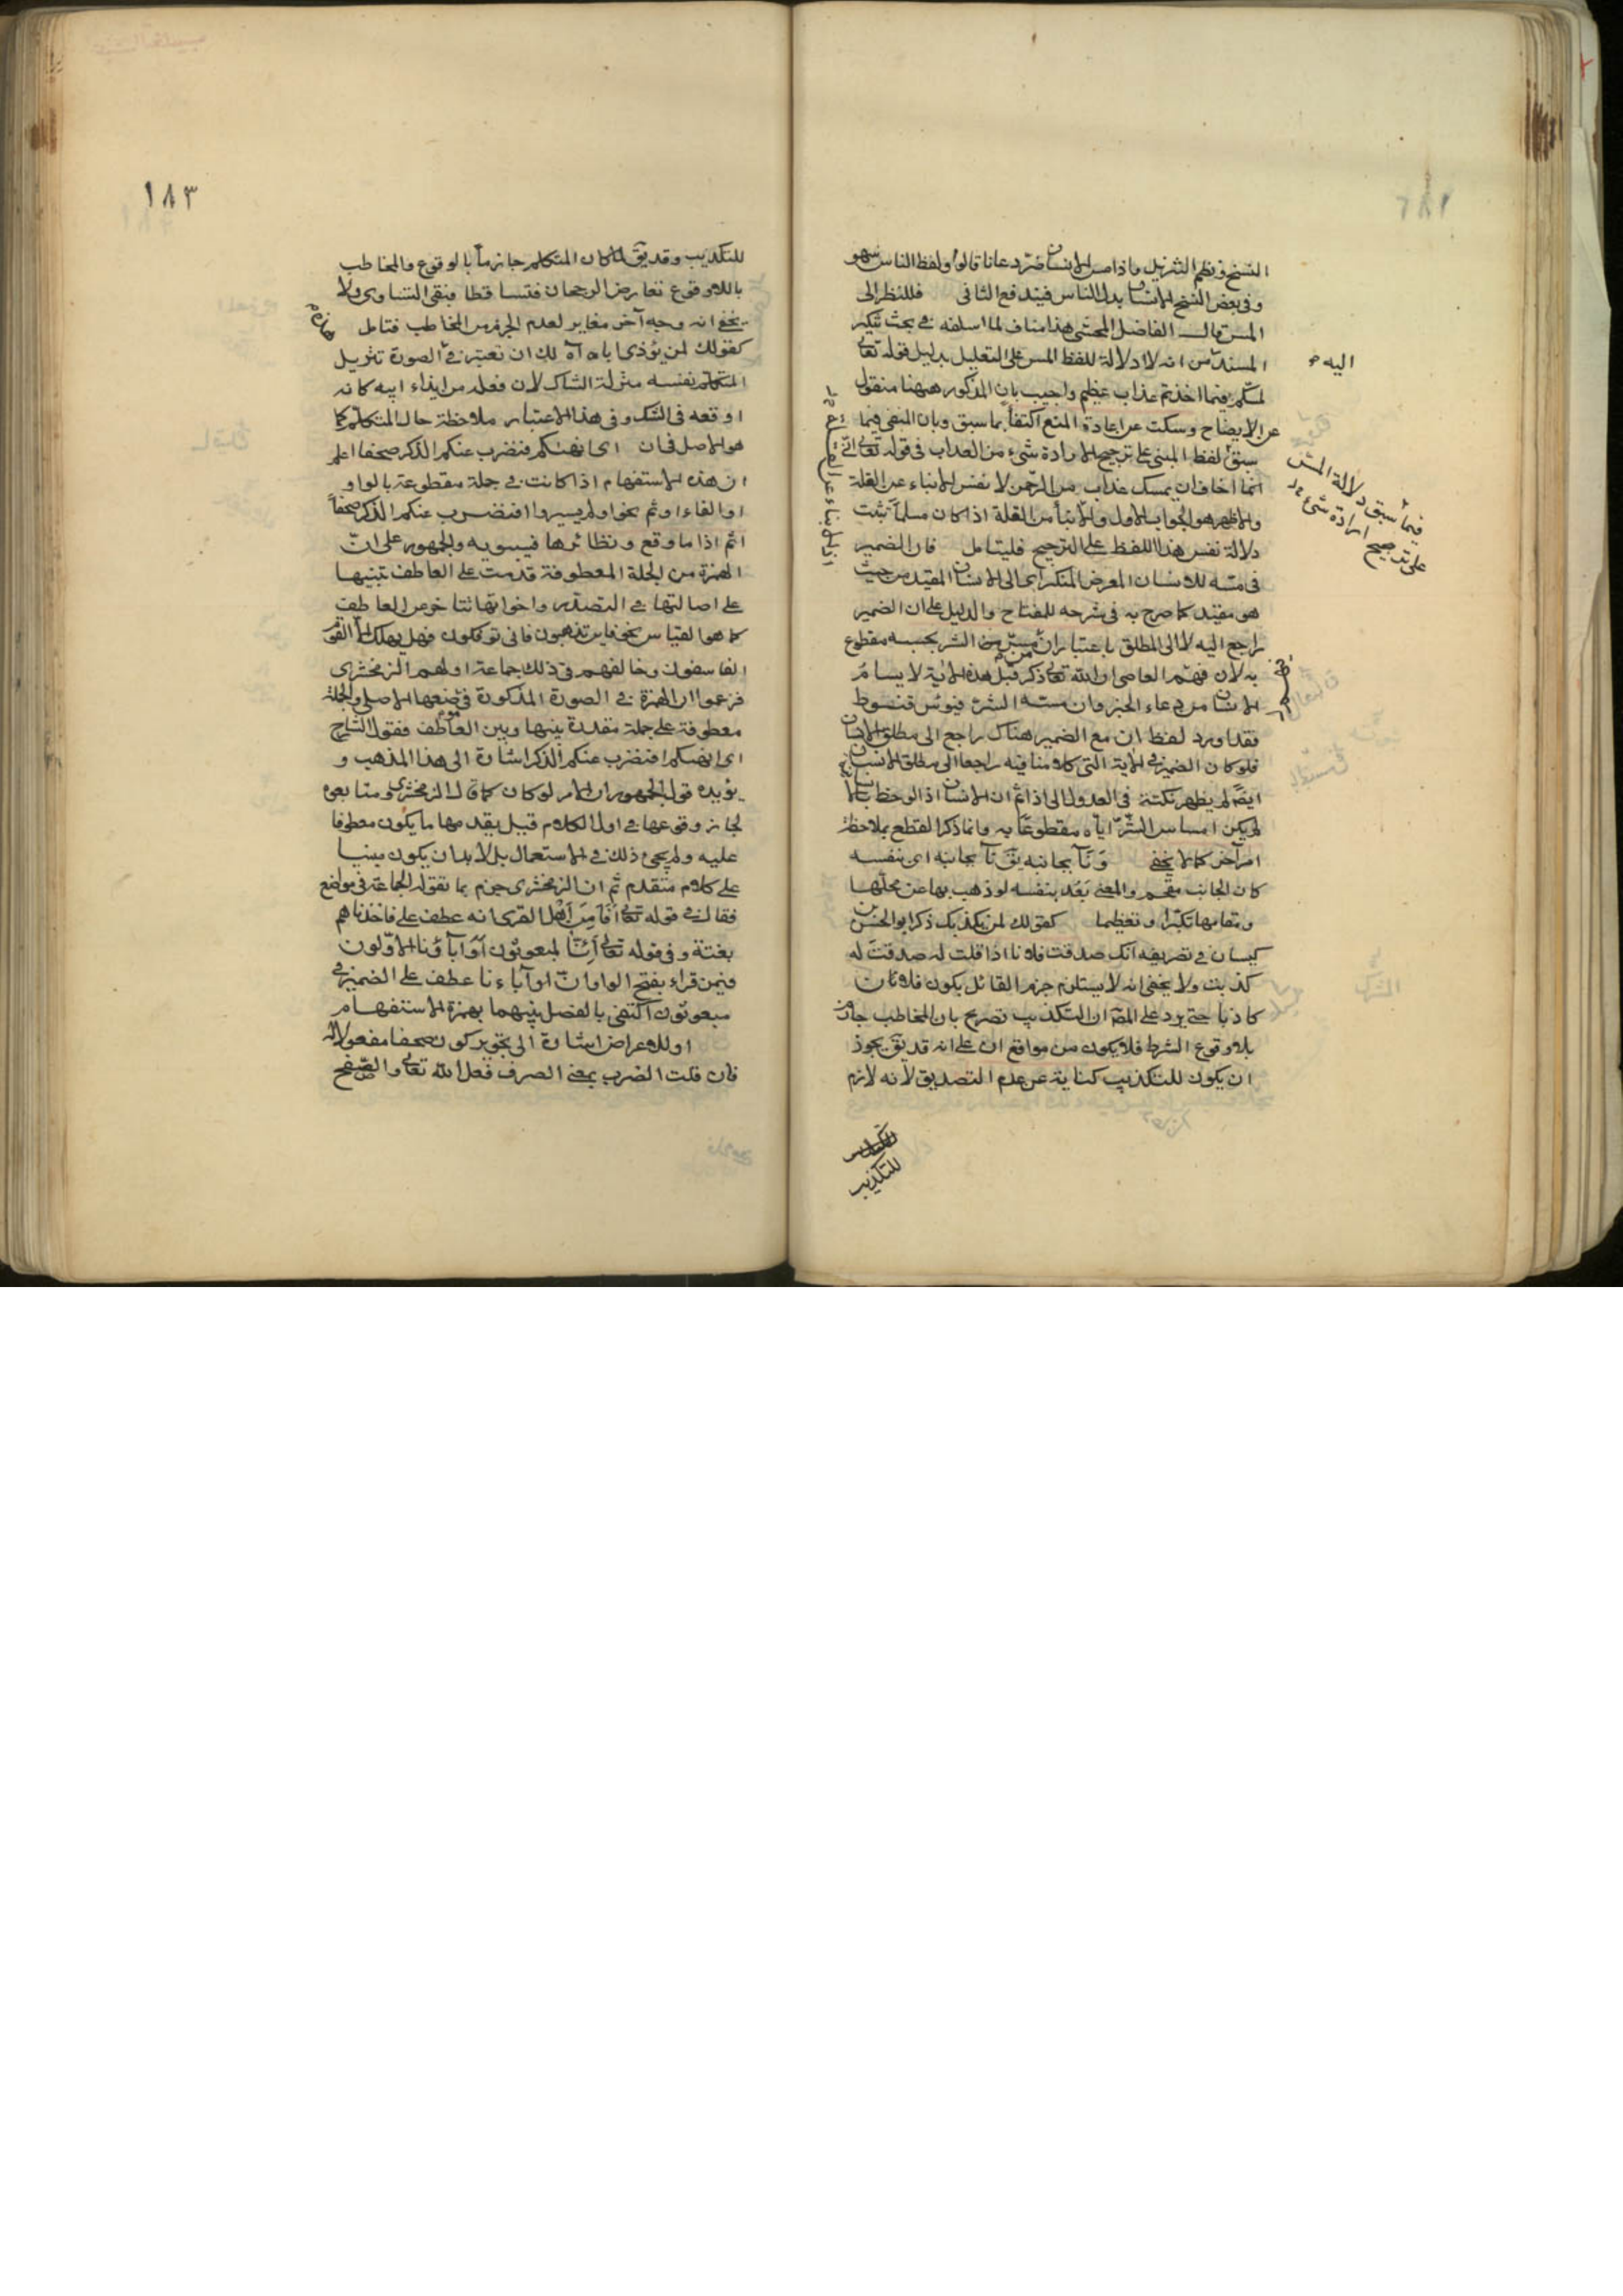 النسخ ونظم التنزيل واذا مس الانسان ضر دعانا قالوا ولفظ الناس سهو
وفى بعض النسخ الانسان بدل الناس فيندفع الثانى فللنظر الى
المس قال الفاضل المحشى هذا مناف لما اسلفه فى بحث تنكير
المسند من انه لا دلالة للفظ المس على التعليل بدليل قوله تعالى
لمسكم فيما اخذتم عذاب عظيم واجيب بان المذكور ههنا منقول
عن الايضاح وسكت عن اعادة المنع اكتفاء بما سبق وبان المنفى فيما
سبق لفظ المبنى على ترجيح الارادة شىء من العذاب فى قوله تعالى انى
انما اخاف ان يمسك عذاب من الرحمن لا نفس الانباء عن القلة
والاظهر هو الجواب الاول والانباء من القلة اذا كان مسلما تثبت
دلالة نفس هذا اللفظ على الترجيح فليتامل فان الضمير
فى مسه للانسان المعرض المتكبر اى الى الانسان المقيد من حيث
هو مقيد كما صرح به فى شرحه للمفتاح والدليل على ان الضمير
راجع اليه لا الى المطلق باعتبار ان الشر بحسبه مقطوع
به لان فهم العاصى ان الله تعالى ذكر قبل هذه الاية لا يسام
الانسان من دعاء الخير وان مسه الشر فيؤس قنوط
فقد اورد لفظ ان مع الضمير هناك راجع الى مطلق الانسان
فلو كان الضمير فى الاية التى كلامنا فيه راجعا الى مطلق الانسان
ايضا لم يظهر نكتة فى العدول الى اذا ثم ان الانسان اذا لوحظ
لم يكن امساس الشر اياه مقطوعا به وانما ذكر القطع بملاحظة
امر آخر كما لا يخفى ونآ بجانبه يق نآ بجانبه اى نفسه
كان الجانب مقحم والمعنى بعد بنفسه لو ذهب بها عن محلها
ومقامها تكبرا وتعظيما كقولك لمن يكذبك ذكر ابو الحسن بن
كيسان فى تصريفه انك صدقت فلانا اذا قلت له صدقت له
كذبت ولا يخفى انه لا يستلزم جزم القائل يكون فلانا
كاذبا حتى يرد على المص ان التكذيب تصريح بان المخاطب جازم
بلا وقوع الشرط فلا يكون من مواقع ان على انه قد يق يجوز
ان يكون للتكذيب كناية عن عدم التصديق لانه لازم
للتكذيب
اليه
فيما سبق دلالة المس
على ترجيح ارادة شىء
١٨٣
للتكذيب وقد يق لما كان المتكلم جازما بالوقوع والمخاطب
باللاوقوع تعارض الرجحان فتساقطا فبقى التساوى ولا
يخفى انه وجه آخر مغاير لعدم الجزم من المخاطب فتامل
كقولك لمن يؤذى اباه اه لك ان تعتبر فى الصورة تنزيل
المتكلم نفسه منزلة الشاك لان فعله من ايذاء ابيه كانه
اوقعه فى الشك وفى هذا الاعتبار ملاحظة حال المتكلم كما
هو الاصل فى ان اى انهملكم فنضرب عنكم الذكر صفحا اعلم
ان هذه الاستفهام اذا كانت فى جملة مقطوعة بالواو
او الفاء او ثم نحو اولم يسيروا افنضرب عنكم الذكر صفحا
اثم اذا ما وقع ونظائرها فسيبويه والجمهور على ان
الهمزة من الجملة المعطوفة قدمت على العاطف تنبيها
على اصالتها فى التصدير واخواتها تتاخر عن العاطف
كما هو القياس نحو فاين تذهبون فانى تؤفكون فهل يهلك الا القوم
الفاسقون وخالفهم فى ذلك جماعة اولهم الزمخشرى
فزعموا ان الهمزة فى الصورة المذكورة فى موضعها الاصلى والجملة
معطوفة على جملة مقدرة بينها وبين العاطف فقول الشارح
اى انهملكم افنضرب عنكم الذكر اشارة الى هذا المذهب و
يؤيده قول الجمهور ان الامر لو كان كما قال الزمخشرى ومتابعوه
لجاز وقوعها فى اول الكلام قبل تقدمها ما يكون معطوفا
عليه ولم يجئ ذلك فى الاستعمال بل لا بد ان يكون مبنيا
على كلام متقدم ثم ان الزمخشرى جزم بما تقوله الجماعة فى مواضع
فقال فى قوله تعالى أفأمن أهل القرى انه عطف على فاخذناهم
بغتة وفى قوله تعالى أئنا لمبعوثون أوآباؤنا الاولون
فيمن قراء بفتح الواو ان اوآباءنا عطف على الضمير فى
مبعوثون اكتفى بالفصل بينهما بهمزة الاستفهام
او للاعراض اشارة الى تجويز كون صفحا مفعولا له
فان قلت الضرب بمعنى الصرف فعل الله تعالى والصفح